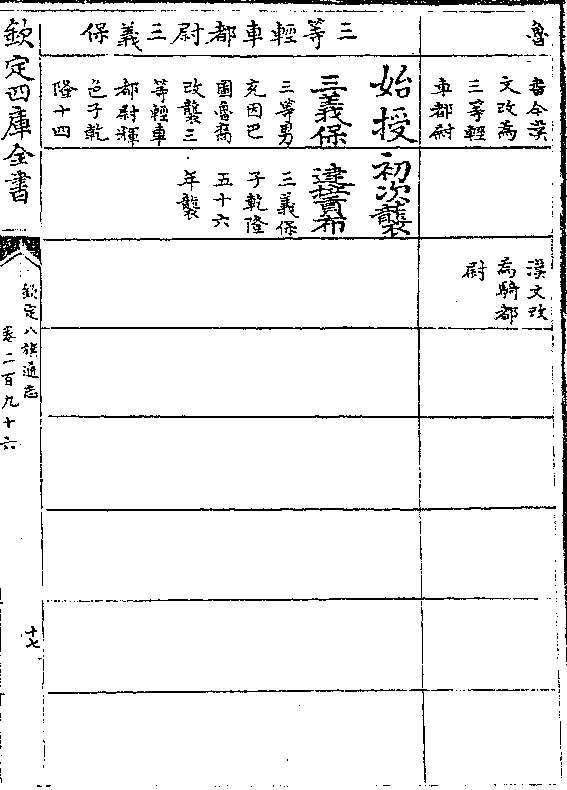 魯
書今漢
文改為
三等輕
車都尉
漢文改
為騎都
尉
三等輕車都尉三義保
始授
三義保
三等男
克因巴
圖魯裔
改襲三
等輕車
都尉輝
色子乾
隆十四
初次襲
三義保
子乾隆
五十六
年襲
欽定四庫全書
欽定八旗通志
卷二百九十六
十七